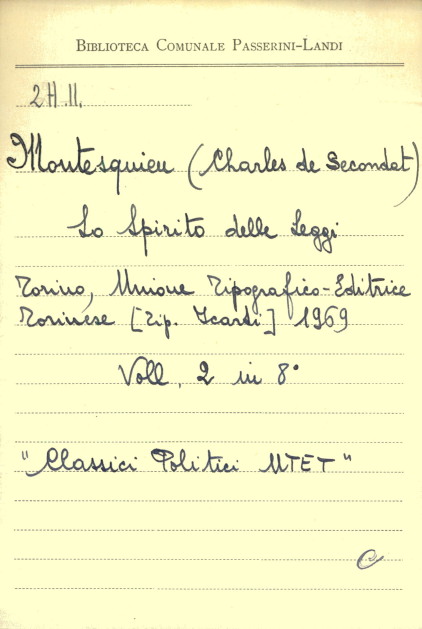 BIBLIOTECA COMUNALE PASSERINI-LANDI
2H.11.
Montesquieu (Charles de Secondat)
Lo Spirito delle Leggi
Torino, Unione Tipografico-Editrice
Torinese [Tip. Icardi] 1969
Voll. 2 in 8°
"Classici Politici UTET"
C